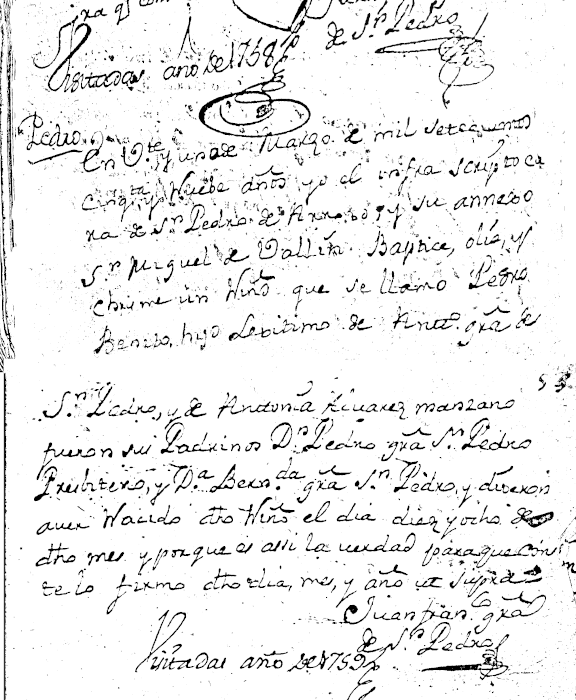 de Sn. Pedro
Visitadas año de 1758
Pedro
En Vte. y uno de Marzo de mil setecientos
cinqta. y Nuebe años yo el infra scripto cu
ra de Sn. Pedro de y su annexo
Sn. Miguel de Vallin Baptice, olie, y
Chrisme un Niño que se llamo Pedro
Benito, hijo Lexitimo de Anto. gra. de
Sn. Pedro, y de Antonia Alvarez manzano
fueron sus Padrinos Dn. Pedro gra. Sn. Pedro
Presbitero, y Da. Bernda. gra. Sn. Pedro, y dixeron
aver Nacido dho Niño el dia diez y ocho de
dho mes y porque es assi la verdad para que cons
te lo firmo dho dia, mes, y año ut supra
Juan Franco. gra.
de Sn. Pedro
Visitadas año de 1759